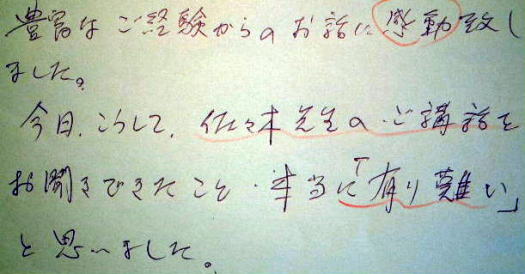 豊富なご経験からのお話に感動致し
ました。
今日、こうして、佐々木先生のご講話を
お聞きできたこと、本当に「有り難い」
と思いました。